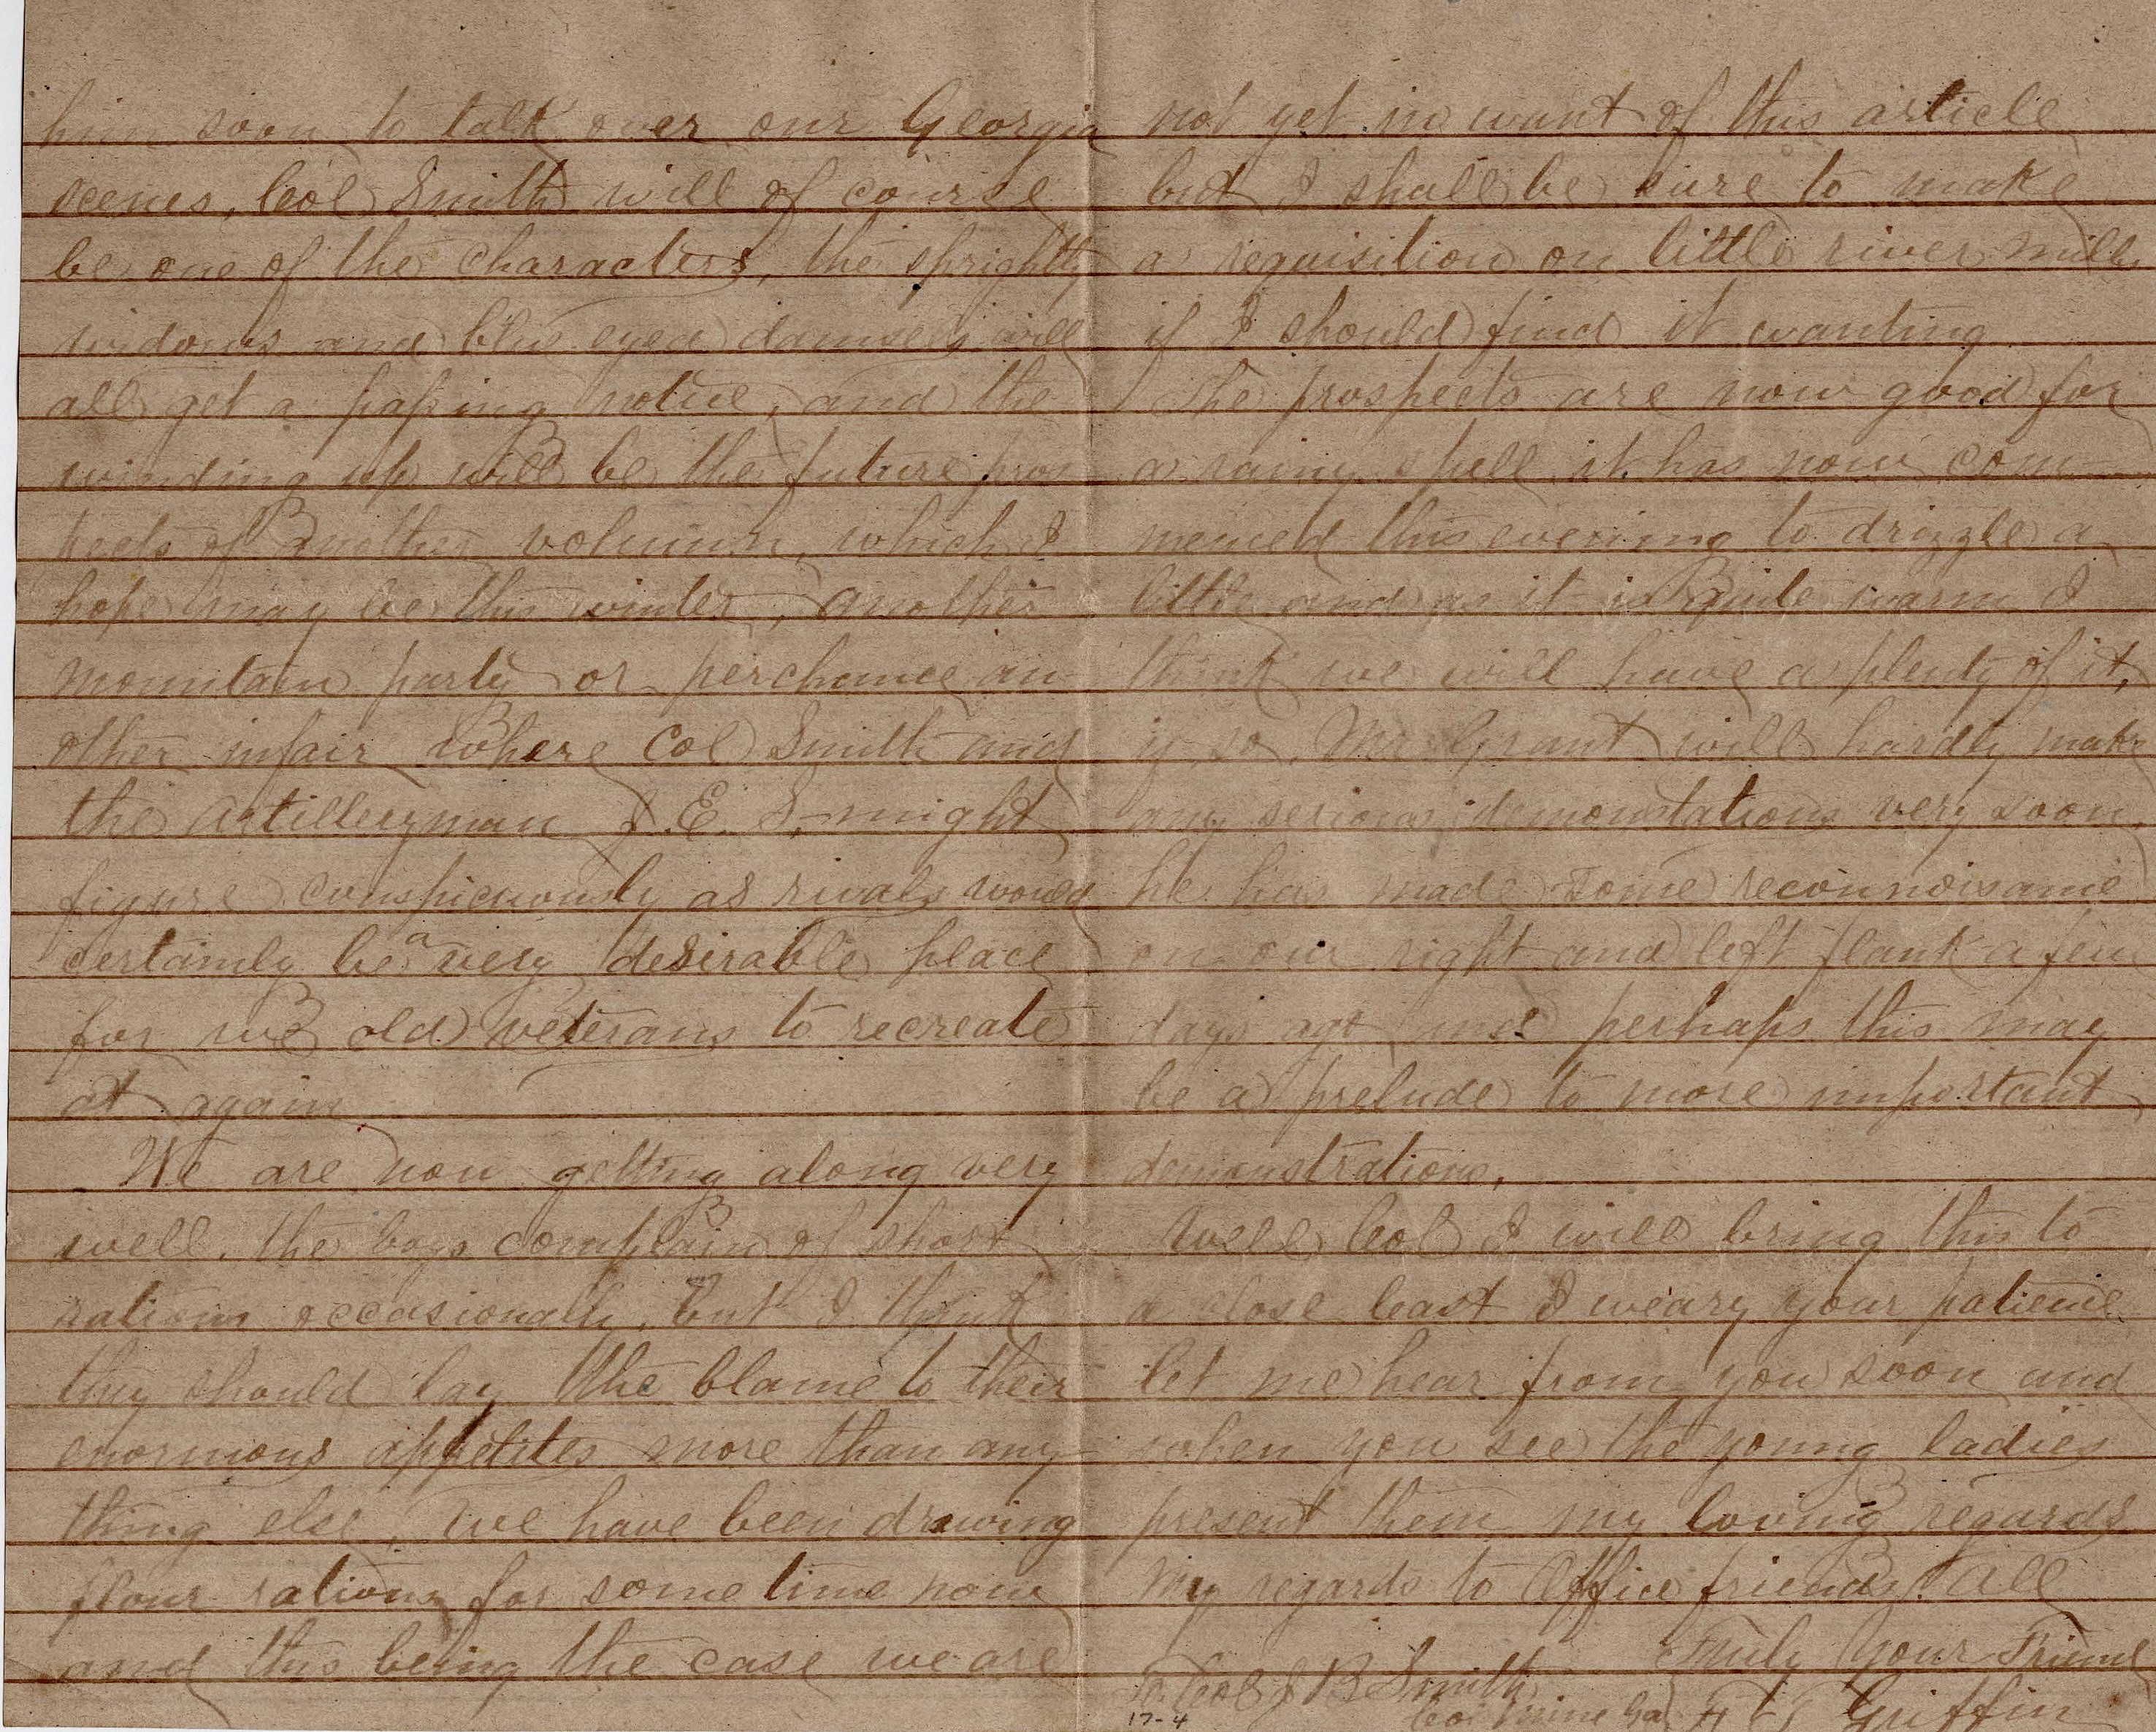 him soon to talk over our Georgia
scenes, Col Smith will of course
be one of the characters, the sprightly
widows and blue eyed damsels will
all get a passing notice, and the
winding up will be the future pros
pects of another volumn, which I
hope may be this winter, another
mountain party or perchance an
other infair where Col Smith and
the artilleryman J. E. S, might
figure conspicuously as rivals would
certainly be a very desirable place
for we old veterans to recreate
at again
We are now getting along very
well, the boys complain of short
rations occasionally, but I think
they should lay the blame to their
enormous appetites more than any
thing else, we have been drawing
flour rations for some time now
and this being the case we are
not yet in want of this article
but I shall be sure to make
a requisition on little river mills
if I should find it wanting
The prospects are now good for
a rainy spell it has now com
menced this evening to drizzle a
little and as it is quite warm I
think we will have a plenty of it,
if so, Mr Grant will hardly make
any serious demonstations very soon,
he has made some reconnoisance
on our right and left flank a few
days ago and perhaps this may
be a prelude to more important
demonstrations,
Well Col I will bring this to
a close least I weary your patience
let me hear from you soon and
when you see the young ladies
present them my loving regards
My regards to Office friends all
Truly Your Friend
To Col J B Smith
Griffin
17-4